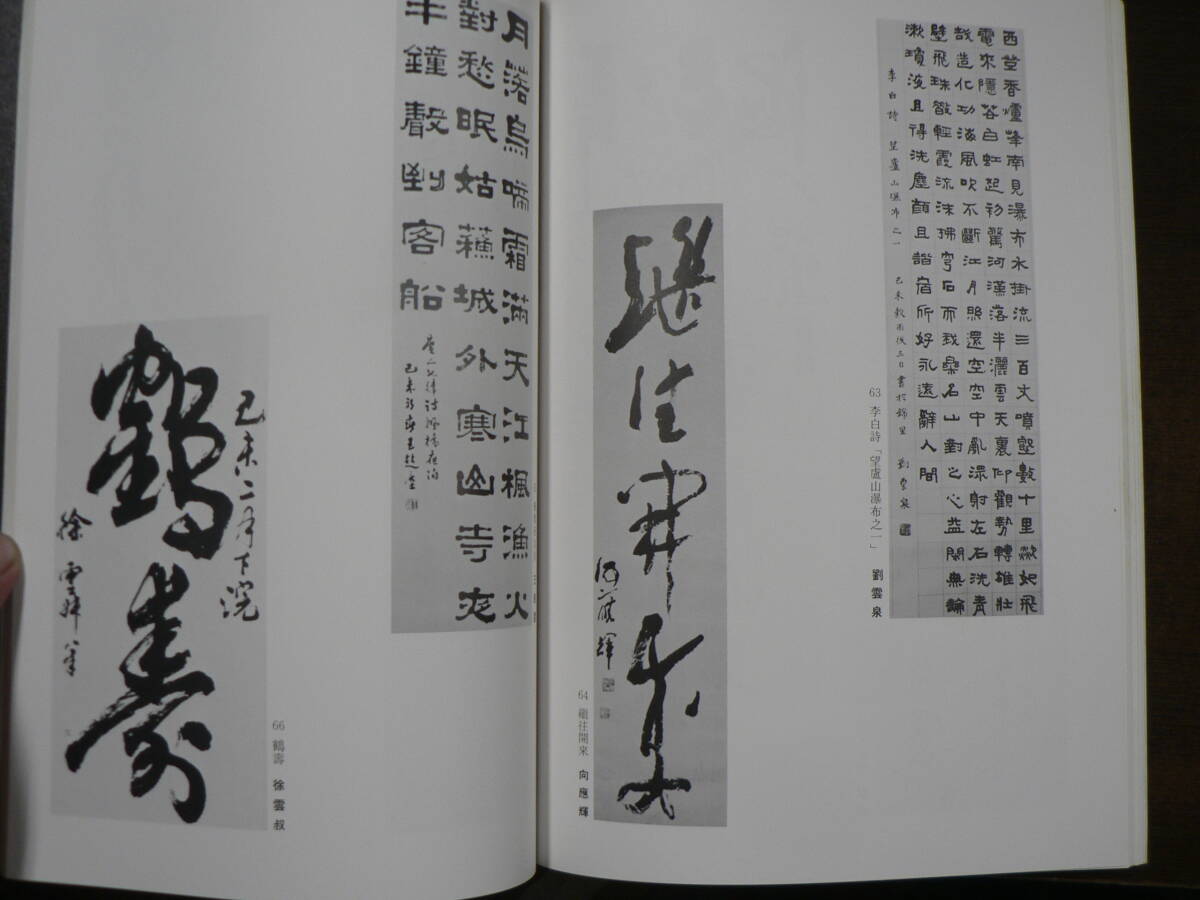 西登香爐峰南見瀑布水掛流三百丈噴壑數十里歘如飛
電來隱若白虹起初驚河漢落半灑雲天裏仰觀勢轉雄壯
哉造化功海風吹不斷江月照還空空中亂潈射左右洗青
壁飛珠散輕霞流沫拂穹石而我樂名山對之心益閑無論
漱瓊液且得洗塵顏且諧宿所好永遠辭人間
李白詩 望廬山瀑布之一 己未穀雨後三日書於錦里 劉雲泉
63 李白詩「望盧山瀑布之一」 劉雲泉
繼往開來
向應輝
64 繼往開來 向應輝
月落烏啼霜滿天江楓漁火
對愁眠姑蘇城外寒山寺夜
半鐘聲到客船
己未二月下浣
鶴壽
徐雲叔筆
66 鶴壽 徐雲叔